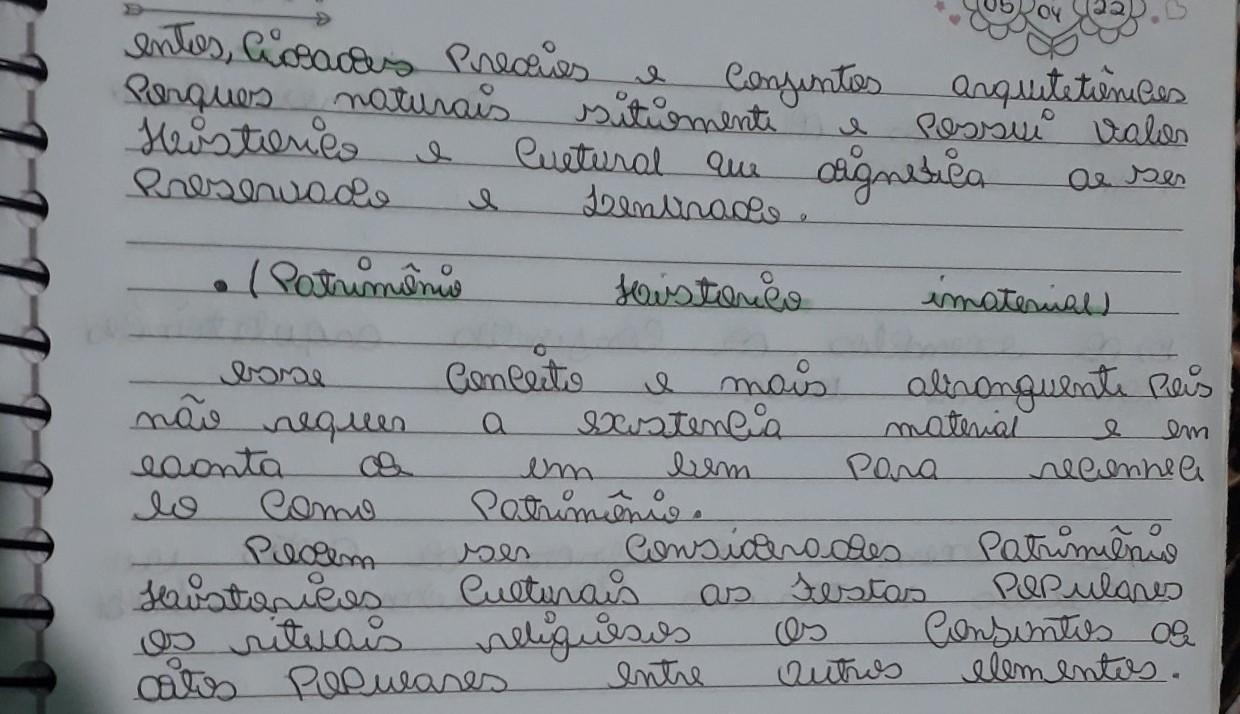 05 04 22
entes, Cidades Prédios e Conjuntos arquitetônicos
Parques naturais sitiomente e Possui valor
Históricos e Cultural que dignifica a ser
Preservados e
• (Patrimônio Históricos imaterial)
esse Conceito e mais abrangente Pois
não requer a existência material e em
conta de um bem Para reconhe
lo como Patrimônio.
Podem ser Considerados Patrimônio
Históricos Culturais as festas Populares
os rituais religiosos os Conjuntos de
ditos Populares entre outros elementos.